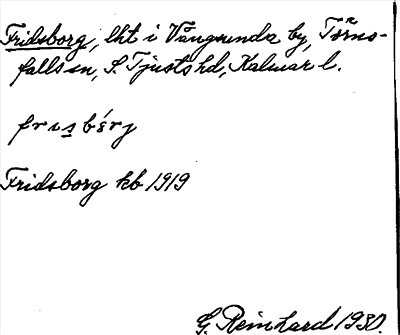 Fridsborg, lht i Vångsunda by, Törns-
falls sn, S. Tjusts hd, Kalmar l.
frisbérj
Fridsborg kb 1919
G. Reinhard 1930.